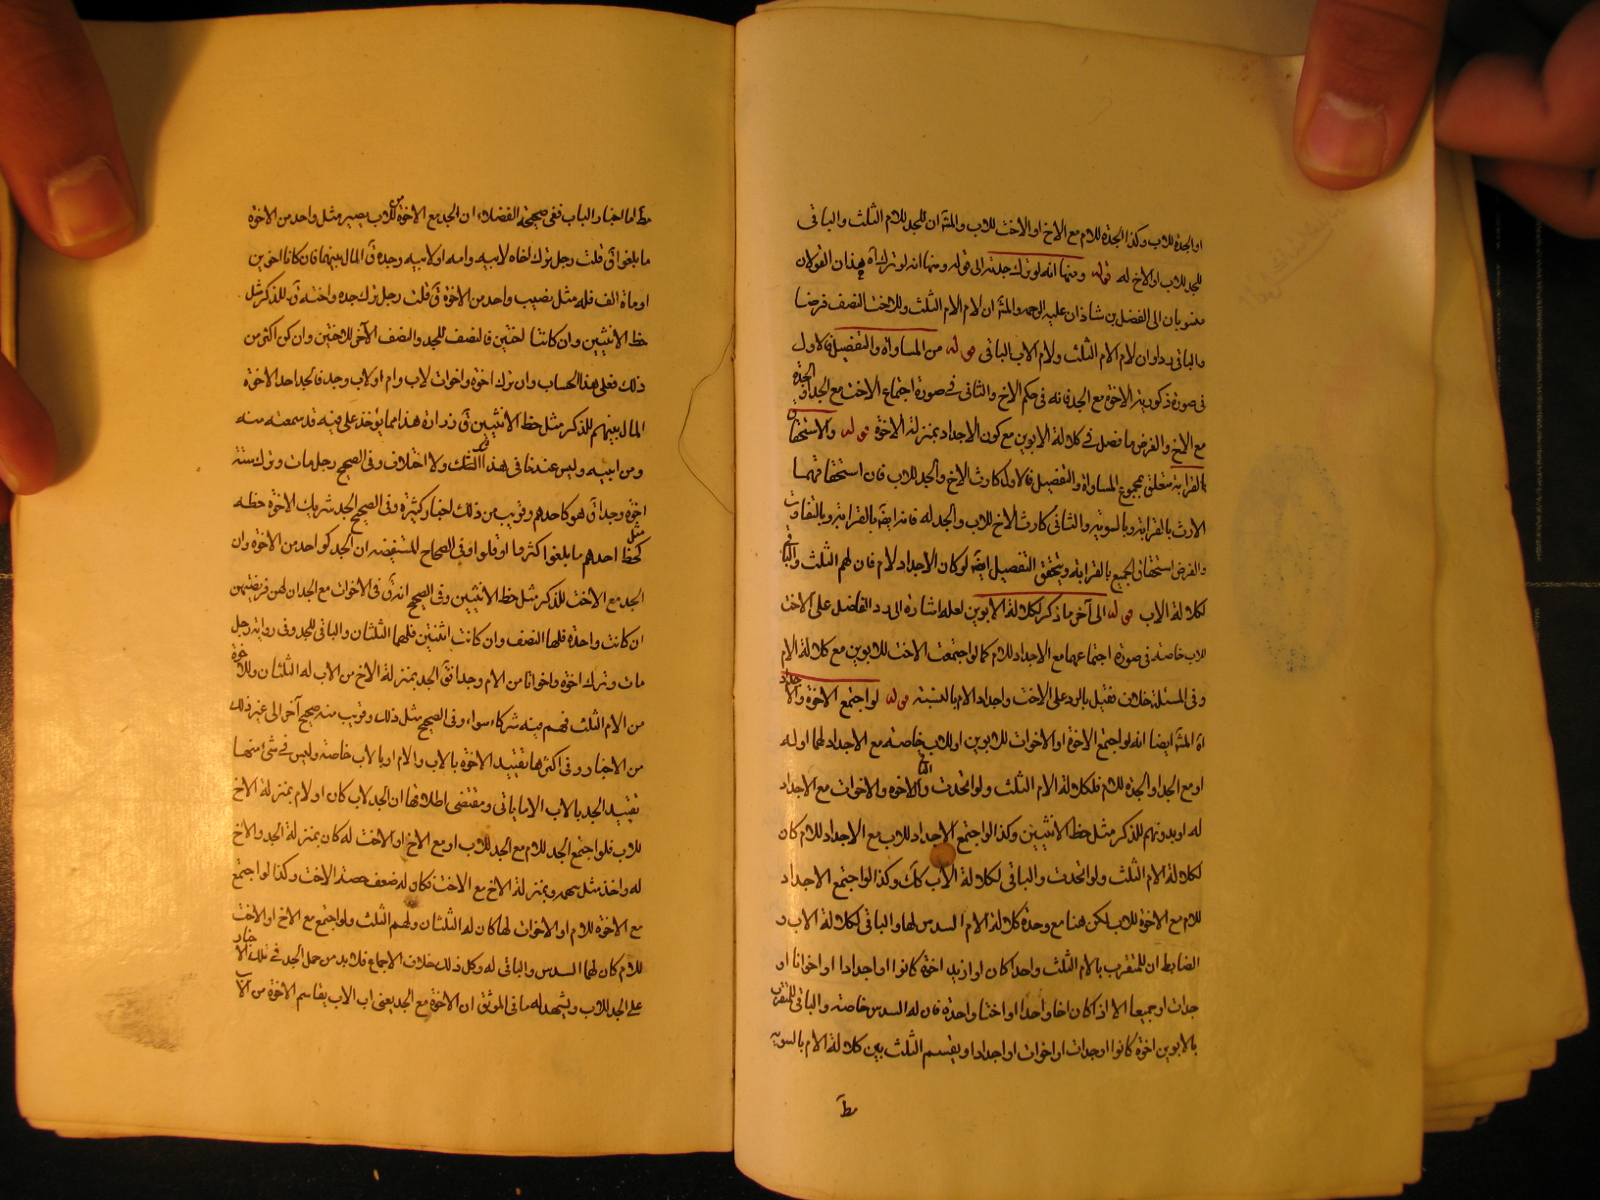 او الجدة للاب وكذا الجدة للام مع الاخ او الاخت للاب والمش ان للجد للام الثلث والباقى
للجد للاب او الاخ له قوله ومنها انه لو ترك جدته الى قوله ومنها انه لو ترك هذان القولان
منسوبان الى الفضل بن شاذان عليه الرحمه والمش ان لام الام الثلث وللاخت النصف فرضا
والباقى ردا وان لام الام الثلث ولام الاب الباقى قوله من المساواة والتفصيل فالاول
فى صورة ذكورية الاخوة مع الجد فانه فى حكم الاخ والثانى فى صورة اجتماع الاخت مع الجد او الجدة
مع الاخ والفرض ما فصل فى كلالة الابوين مع كون الاجداد بمنزلة الاخوة قوله والاستحقاق
بالقرابة متعلق بمجموع المساواة والتفصيل فالاول كارث الاخ والجد للاب فان استحقاقهما
الارث بالقرابة وبالسوية والثانى كارث الاخ للاب والجد له فانه ايضا بالقرابة وبالتفاوت
والفرض استحقاق الجميع بالقرابة ويتحقق التفصيل ايضا لو كان الاجداد لام فان لهم الثلث والباقى
لكلالة الاب قوله الى آخر ما ذكر لكلالة الابوين لعله اشارة الى رد الفاضل على الاخت
للاب خاصة فى صورة اجتماعها مع الاجداد للام كما لو اجتمعت الاخت للابوين مع كلالة الام
وفى المسئلة خلاف فقيل بالرد على الاخت واجداد الام بالنسبة قوله لو اجتمع الاخوة والاجداد
اه المش ايضا انه لو اجتمع الاخوة او الاخوات للابوين او للاب خاصة مع الاجداد لهما او له
او مع الجد او الجدة للام فلكلالة الام الثلث ولو اتحدت والاخوة والاخوات مع الاجداد
له او بدونهم للذكر مثل حظ الانثيين وكذا لو اجتمع الاجداد للاب مع الاجداد للام كان
لكلالة الام الثلث ولو اتحدت والباقى لكلالة الاب كك وكذا لو اجتمع الاجداد
للام مع الاخوة للاب لكن هنا مع وحدة كلالة الام السدس لها والباقى لكلالة الاب و
الضابط ان للمتقرب بالام الثلث واحدا كان او ازيد اخوة كانوا او اجدادا او اخوانا او
جدات او جميعا الا اذا كان اخا واحدا او اختا واحدة فان له السدس خاصة والباقى للمتقرب
بالابوين اخوة كانوا او جدات او اخوات او اجدادا ويقسم الثلث بين كلالة الام بالسوية
ط
ط اما اخبار الباب ففى صحيحة الفضلاء ان الجد مع الاخوة من الاب يصير مثل واحد من الاخوة
ما بلغوا ق قلت رجل ترك اخاه لابيه وامه او لابيه وجده ق المال بينهما فان كانا اخوين
او مائة الف فله مثل نصيب واحد من الاخوة ق قلت رجل ترك جده واخته ق للذكر مثل
حظ الانثيين وان كانتا اختين فالنصف للجد والنصف الآخر للاختين وان كن اكثر من
ذلك فعلى هذا الحساب وان ترك اخوة واخوات لاب وام او لاب وجد فالجد احد الاخوة
المال بينهم للذكر مثل حظ الانثيين ق زرارة هذا مما يؤخذ على فيه قد سمعته منه
ومن ابيه وليس عندنا فى هذا الشك ولا اختلاف وفى الصحيح رجل مات وترك ستة
اخوة وجدا ق هو كاحدهم وقريب من ذلك اخبار كثيرة وفى الصحيح الجد شريك الاخوة حظه
مثل حظ احدهم ما بلغوا كثروا او قلوا وفى الصحاح المستفيضة ان الجد كواحد من الاخوة وان
الجد مع الاخت للذكر مثل حظ الانثيين وفى الصحيح انه ق فى الاخوات مع الجد ان لهن فريضتهن
ان كانت واحدة فلها النصف وان كانت اثنتين فلهما الثلثان والباقى للجد وفى رواية رجل
مات وترك اخوة واخواتا من الام وجدا فق الجد بمنزلة الاخ من الاب له الثلثان وللاخوة
من الام الثلث فهم فيه شركاء سواء وفى الصحيح مثل ذلك وقريب منه صحيح آخر الى غير ذلك
من الاخبار وفى اكثرها تقييد الاخوة بالاب والام او بالاب خاصة وليس فى شئ منها
تقييد الجد بالاب الا ما ياتى ومقتضى اطلاقها ان الجد لاب كان او لام بمنزلة الاخ
للاب فلو اجتمع الجد للام مع الجد للاب او مع الاخ او الاخت له كان بمنزلة الجد والاخ
له واخذ مثل سهمه وبمنزلة الاخ مع الاخت فكان له ضعف حصة الاخت وكذا لو اجتمع
مع الاخوة للام او الاخوات لها كان له الثلثان ولهم الثلث ولو اجتمع مع الاخ او الاخت
للام كان لها السدس والباقى له وكل ذلك خلاف الاجماع فلا بد من حمل الجد فى تلك الاخبار
على الجد للاب ويشهد له ما فى الموثق ان الاخوة مع الجد يعنى اب الاب يقاسم الاخوة من الاب